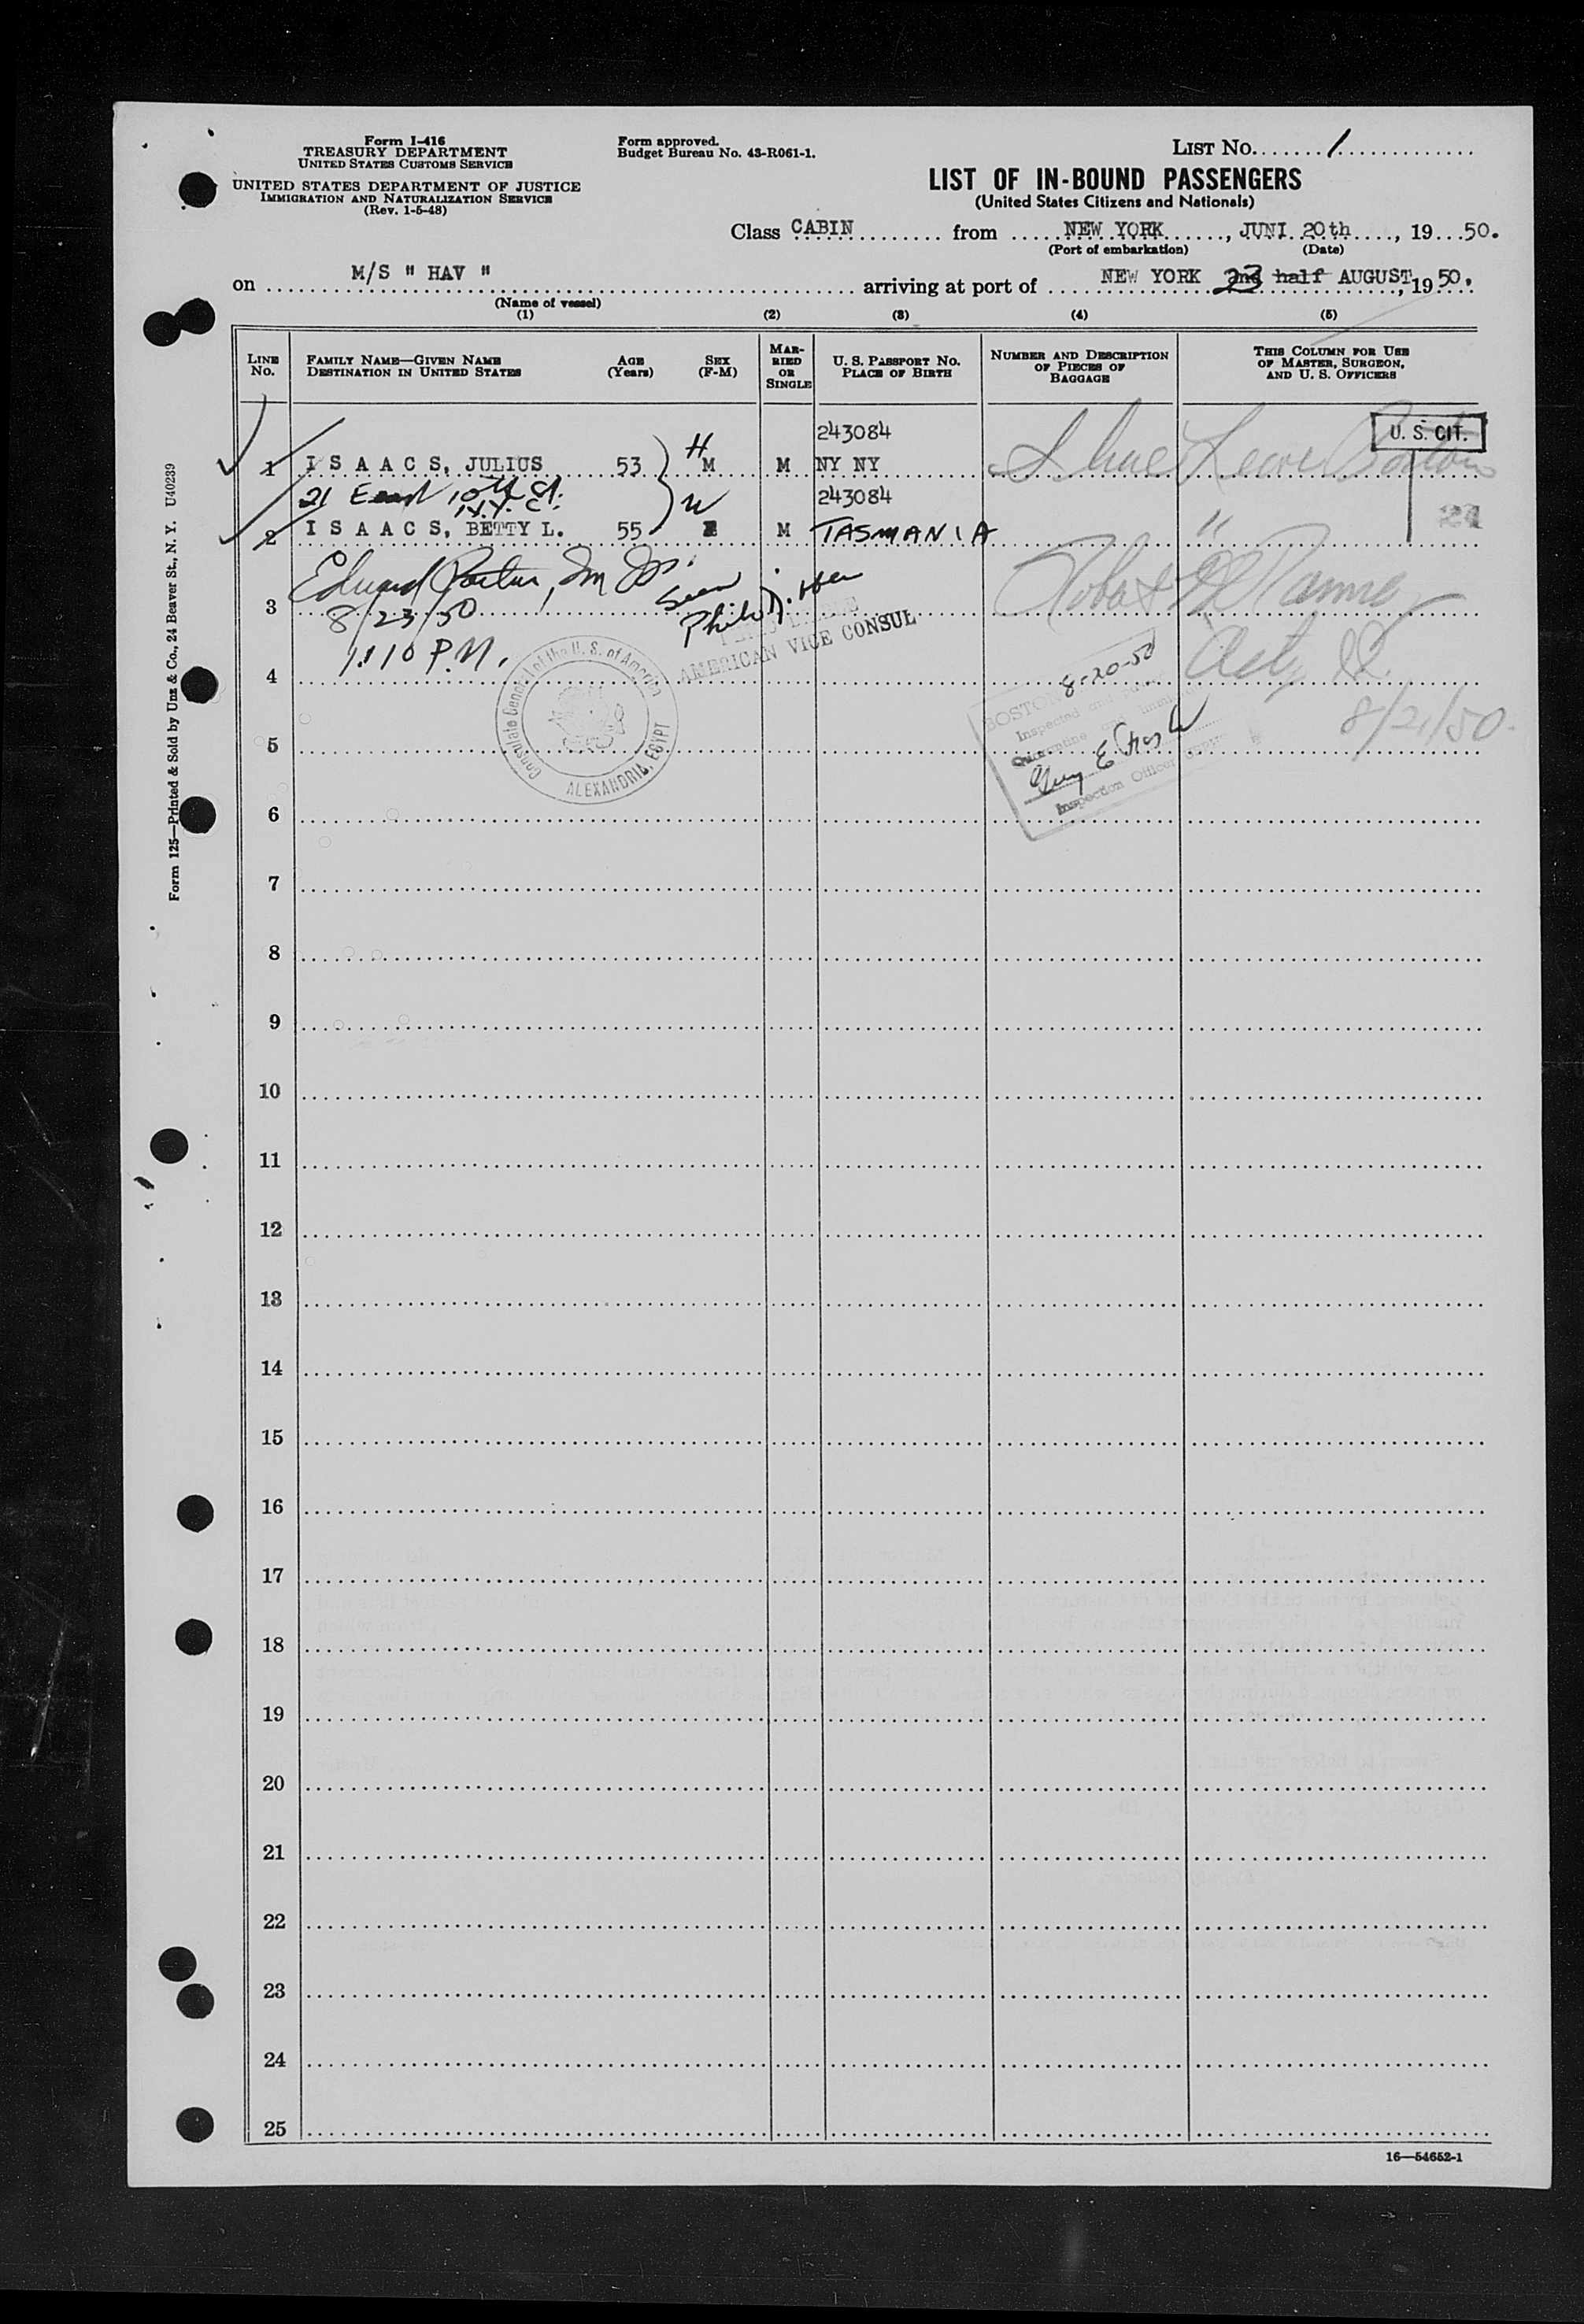 Form I-416
TREASURY DEPARTMENT
UNITED STATES CUSTOMS SERVICE
UNITED STATES DEPARTMENT OF JUSTICE
IMMIGRATION AND NATURALIZATION SERVICE
(Rev. 1-5-48)
Form approved.
Budget Bureau No. 43-R061-1.
LIST NO. 1
LIST OF IN-BOUND PASSENGERS
(United States Citizens and Nationals)
Class CABIN from NEW YORK, JUNI 20th, 1950.
(Port of embarkation) (Date)
on M/S " HAV " arriving at port of NEW YORK 23 2nd half AUGUST, 1950.
(Name of vessel)
(1) (2) (3) (4) (5)
LINE NO.
FAMILY NAME—GIVEN NAME
DESTINATION IN UNITED STATES
AGE (Years)
SEX (F-M)
MARRIED OR SINGLE
U. S. PASSPORT NO.
PLACE OF BIRTH
NUMBER AND DESCRIPTION OF PIECES OF BAGGAGE
THIS COLUMN FOR USE OF MASTER, SURGEON, AND U. S. OFFICERS
243084
U. S. CIT.
1 I S A A C S, JULIUS 53 H M M NY NY
21 East 10th St. 243084
N.Y. C.
2 I S A A C S, BETTY L. 55 W F M TASMANIA "
Edward
Seen
3 8/23/50
AMERICAN VICE CONSUL
1:10 P.M.
4
Consulate General of the U. S. of America
ALEXANDRIA, EGYPT
BOSTON 8-20-50
Inspected and
Quarantine
Guy E
Inspection Officer
8/21/50
5
6
7
8
9
10
11
12
13
14
15
16
17
18
19
20
21
22
23
24
25
16—54652-1
Form 125—Printed & Sold by Unz & Co., 24 Beaver St., N. Y. U40239